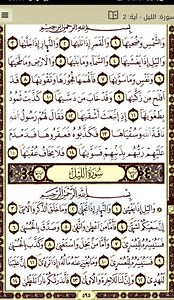 سورة: الليل - آية: 2
بِسْمِ اللَّهِ الرَّحْمَٰنِ الرَّحِيمِ
وَالشَّمْسِ وَضُحَاهَا ١ وَالْقَمَرِ إِذَا تَلَاهَا ٢ وَالنَّهَارِ إِذَا جَلَّاهَا ٣
وَاللَّيْلِ إِذَا يَغْشَاهَا ٤ وَالسَّمَاءِ وَمَا بَنَاهَا ٥ وَالْأَرْضِ وَمَا طَحَاهَا ٦
وَنَفْسٍ وَمَا سَوَّاهَا ٧ فَأَلْهَمَهَا فُجُورَهَا وَتَقْوَاهَا ٨ قَدْ
أَفْلَحَ مَن زَكَّاهَا ٩ وَقَدْ خَابَ مَن دَسَّاهَا ١٠ كَذَّبَتْ ثَمُودُ
بِطَغْوَاهَا ١١ إِذِ انبَعَثَ أَشْقَاهَا ١٢ فَقَالَ لَهُمْ رَسُولُ اللَّهِ
نَاقَةَ اللَّهِ وَسُقْيَاهَا ١٣ فَكَذَّبُوهُ فَعَقَرُوهَا فَدَمْدَمَ
عَلَيْهِمْ رَبُّهُم بِذَنبِهِمْ فَسَوَّاهَا ١٤ وَلَا يَخَافُ عُقْبَاهَا ١٥
سُورَةُ اللَّيْلِ
بِسْمِ اللَّهِ الرَّحْمَٰنِ الرَّحِيمِ
وَاللَّيْلِ إِذَا يَغْشَىٰ ١ وَالنَّهَارِ إِذَا تَجَلَّىٰ ٢ وَمَا خَلَقَ الذَّكَرَ وَالْأُنثَىٰ ٣
إِنَّ سَعْيَكُمْ لَشَتَّىٰ ٤ فَأَمَّا مَنْ أَعْطَىٰ وَاتَّقَىٰ ٥ وَصَدَّقَ بِالْحُسْنَىٰ ٦
فَسَنُيَسِّرُهُ لِلْيُسْرَىٰ ٧ وَأَمَّا مَن بَخِلَ وَاسْتَغْنَىٰ ٨ وَكَذَّبَ بِالْحُسْنَىٰ ٩
فَسَنُيَسِّرُهُ لِلْعُسْرَىٰ ١٠ وَمَا يُغْنِي عَنْهُ مَالُهُ إِذَا تَرَدَّىٰ ١١ إِنَّ عَلَيْنَا
لَلْهُدَىٰ ١٢ وَإِنَّ لَنَا لَلْآخِرَةَ وَالْأُولَىٰ ١٣ فَأَنذَرْتُكُمْ نَارًا تَلَظَّىٰ ١٤
٥٩٥